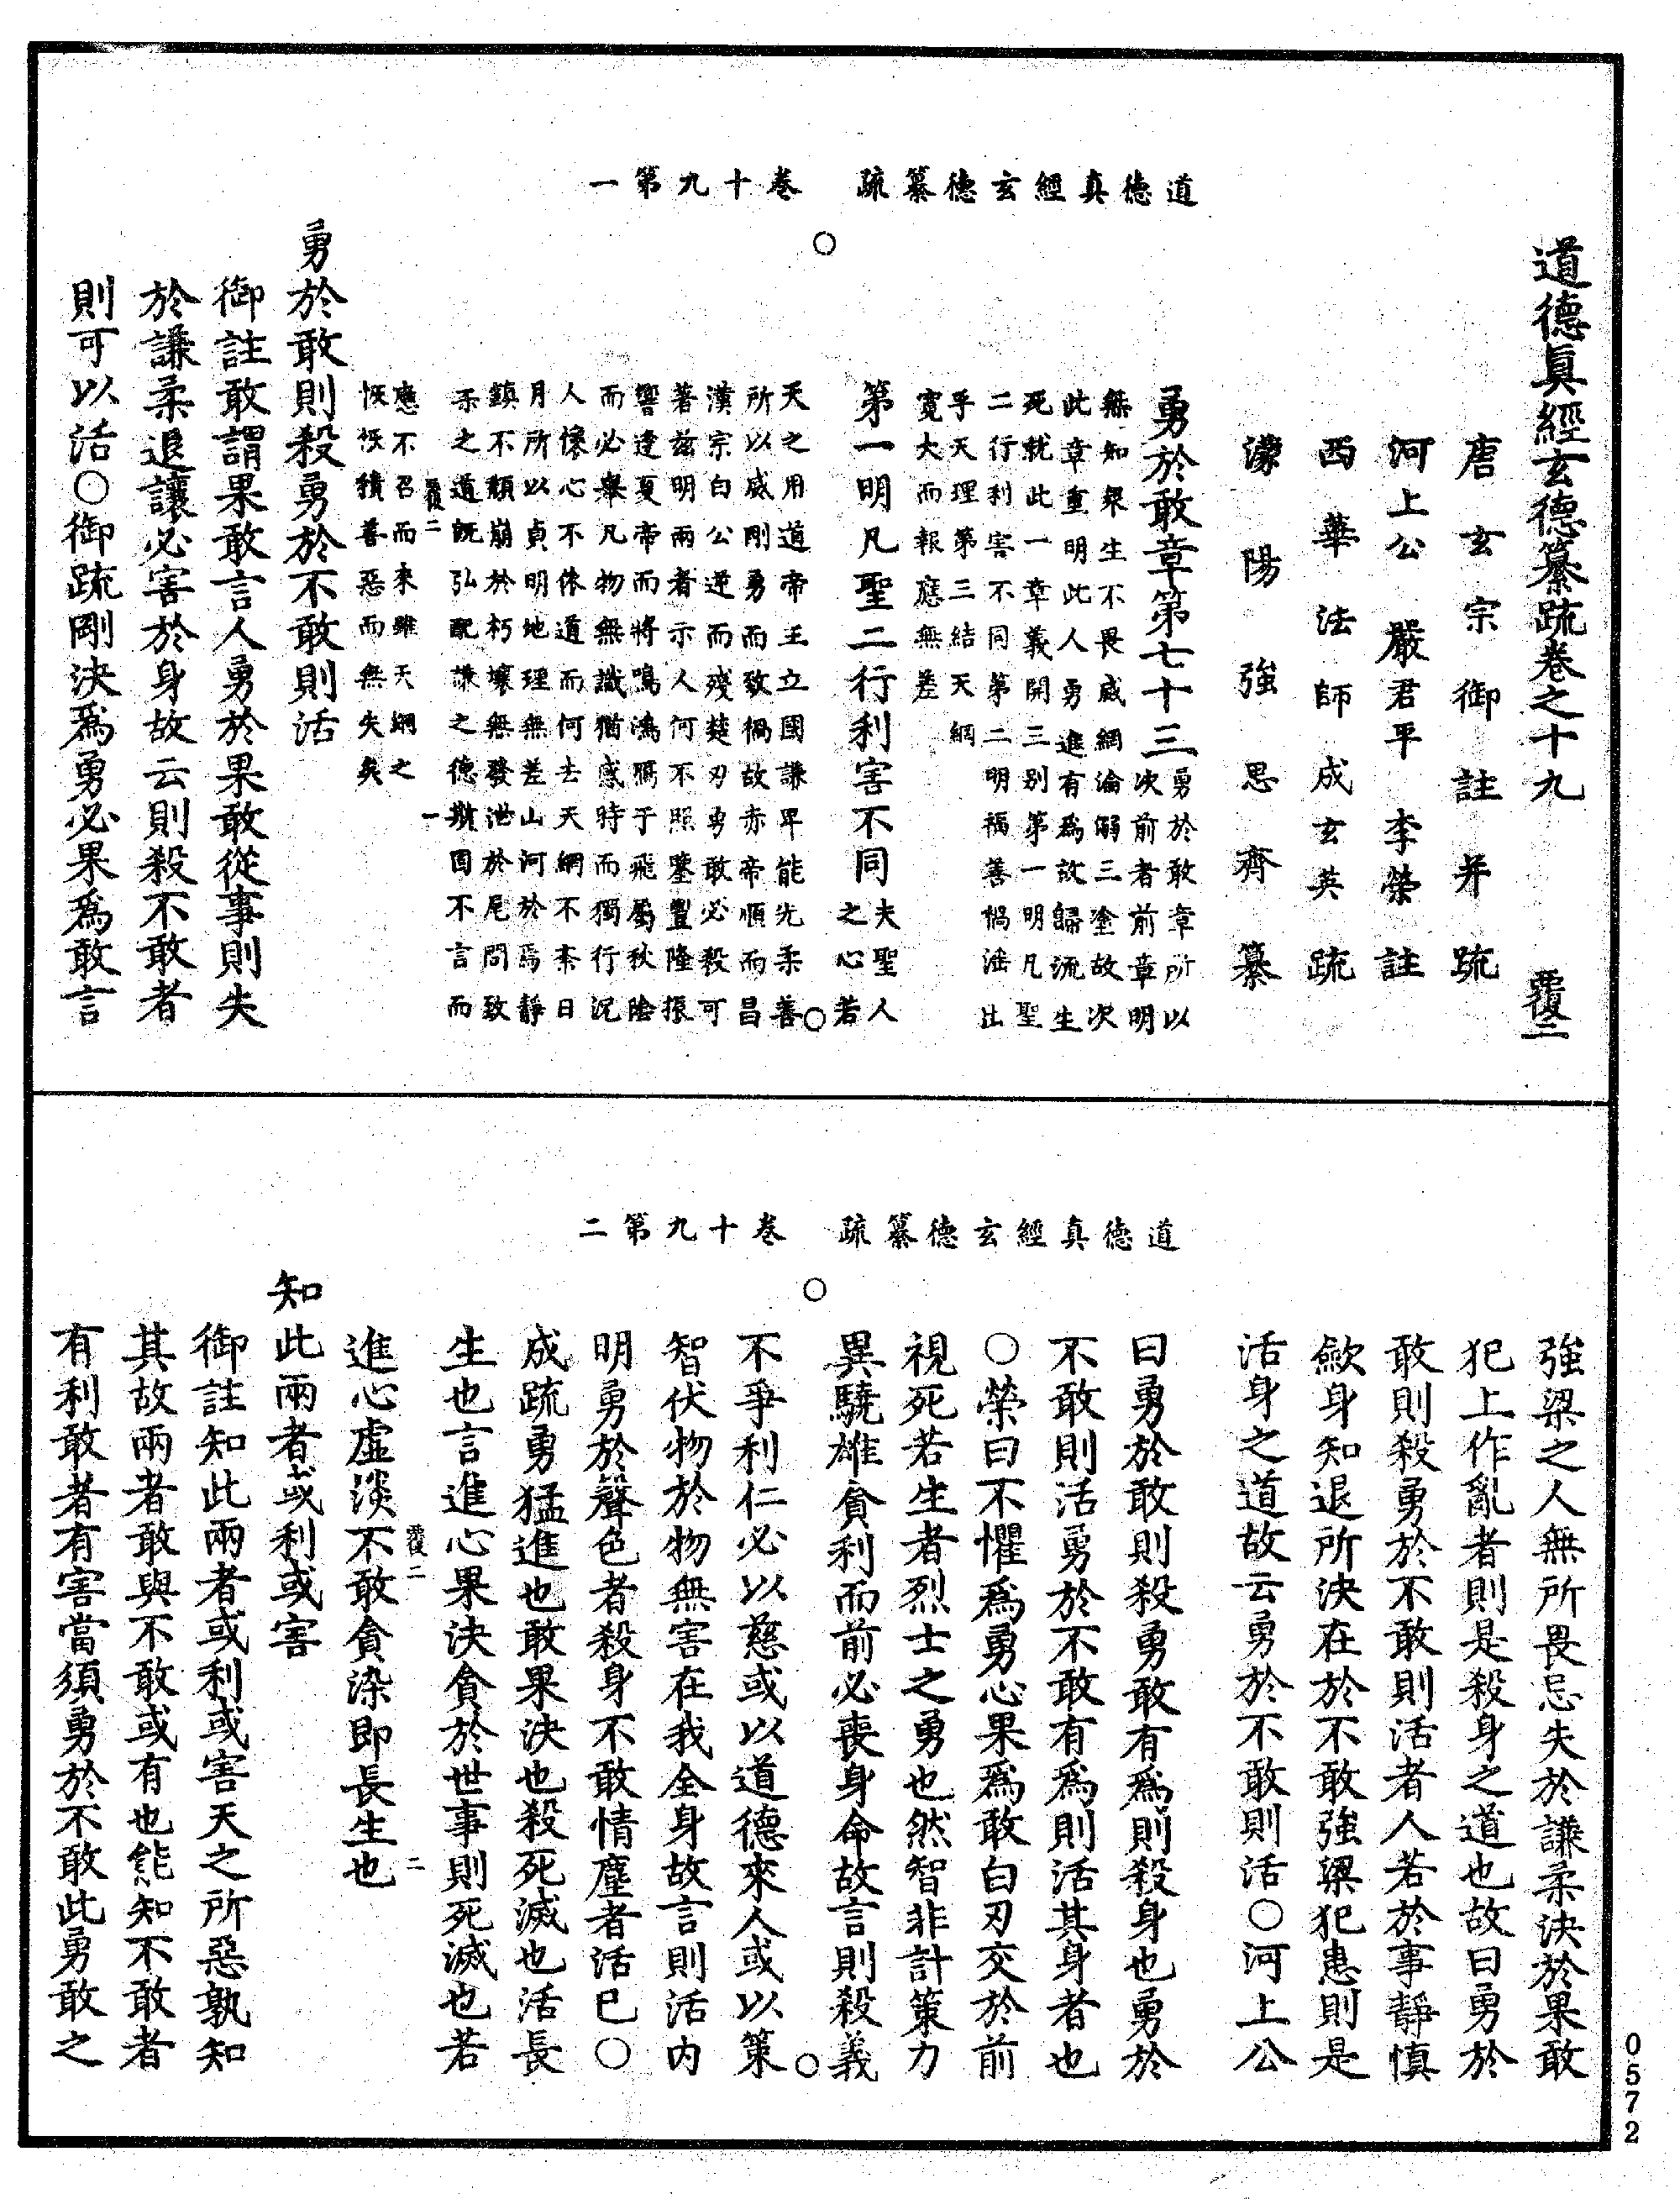 道德真經玄德纂疏　卷十九第一
道德真經玄德纂疏卷之十九　覆二
唐玄宗御註并疏
河上公　嚴君平　李榮註
西華法師成玄英疏
濛陽強思齊纂
勇於敢章第七十三
勇於敢章所以
次前者前章明
無知衆生不畏威網淪溺三塗故次
此章重明此人勇進有爲故歸流生
死就此一章義開三別第一明凡聖
二行利害不同第二明福善禍淫出
乎天理第三結天網
寬大而報應無差
第一明凡聖二行利害不同
夫聖人
之心若
天之用道帝王立國謙卑能先柔善
所以威剛勇而致禍故赤帝順而昌
漢宗白公逆而殘楚刃勇敢必殺可
著茲明兩者示人何不照鑒豐隆振
響逢夏帝而將鳴鴻鴈于飛屬秋陰
而必舉凡物無識猶感時而獨行況
人懷心不倈道而何去天網不紊日
月所以貞明地理無差山河於焉靜
鎮不頹崩於朽壤無發泄於尾閭致
柔之道旣弘配謙之德斯固不言而
覆二　一
應不召而來雖天網之
恢恢積善惡而無失矣
勇於敢則殺勇於不敢則活
御註敢謂果敢言人勇於果敢從事則失
於謙柔退讓必害於身故云則殺不敢者
則可以活○御疏剛決爲勇必果爲敢言
道德真經玄德纂疏　卷十九第二
強梁之人無所畏忌失於謙柔決於果敢
犯上作亂者則是殺身之道也故曰勇於
敢則殺勇於不敢則活者人若於事靜慎
歛身知退所決在於不敢強梁犯患則是
活身之道故云勇於不敢則活○河上公
曰勇於敢則殺勇敢有爲則殺身也勇於
不敢則活勇於不敢有爲則活其身者也
○榮曰不懼爲勇心果爲敢白刃交於前
視死若生者烈士之勇也然智非計策力
異驍雄貪利而前必喪身命故言則殺義
不爭利仁必以慈或以道德來人或以策
智伏物於物無害在我全身故言則活內
明勇於聲色者殺身不敢情塵者活巳○
成疏勇猛進也敢果決也殺死滅也活長
生也言進心果決貪於世事則死滅也若
覆二　二
進心虛淡不敢貪染即長生也
知此兩者或利或害
御註知此兩者或利或害天之所惡孰知
其故兩者敢與不敢或有也能知不敢者
有利敢者有害當須勇於不敢此勇敢之
0572